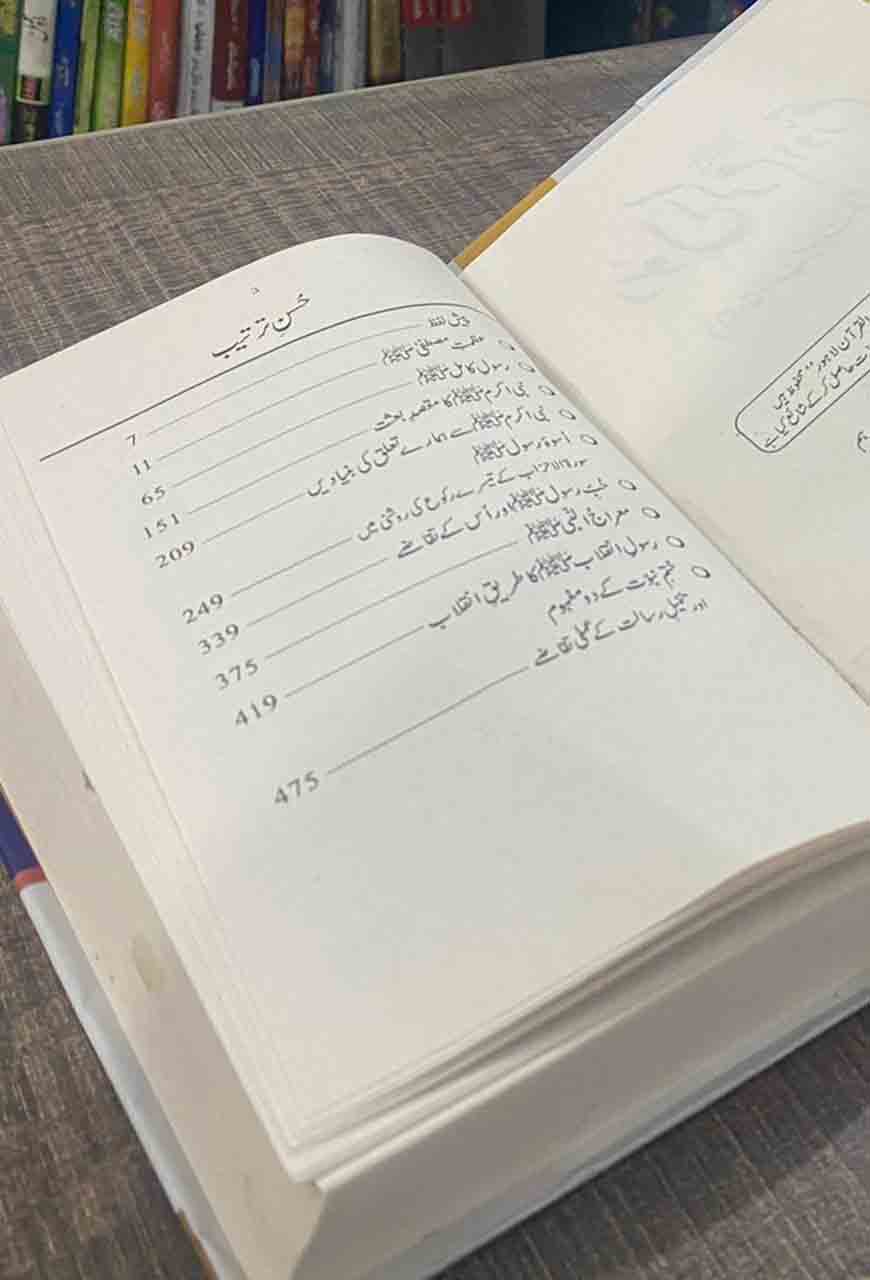 حُسنِ ترتیب
پیش لفظ 7
عظمتِ مصطفیٰ ﷺ 11
رسولِ کامل ﷺ 65
نبی اکرم ﷺ کا مقصدِ بعثت 151
نبی اکرم ﷺ سے ہمارے تعلق کی بنیادیں 209
اُسوۂ رسول ﷺ
سورۃ الاحزاب کے تیسرے رکوع کی روشنی میں 249
حُبِّ رسول ﷺ اور اُس کے تقاضے 339
معراج النبی ﷺ 375
رسولِ انقلاب ﷺ کا طریقِ انقلاب 419
ختمِ نبوت کے دو مفہوم
اور تکمیلِ رسالت کے عملی تقاضے 475
القرآن لاہور محفوظ ہیں
حاصل کر کے شائع کیا ہے